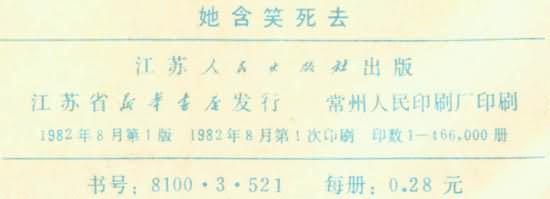 她含笑死去
江苏人民出版社出版
江苏省新华书店发行 常州人民印刷厂印刷
1982年8月第1版 1982年8月第1次印刷 印数1—466,000册
书号：8100·3·521 每册：0.28元